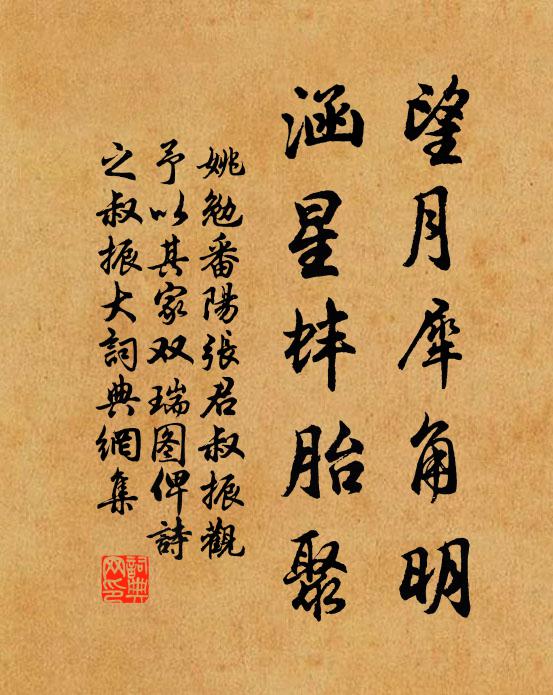 望月犀角明
涵星蚌胎聚
姚勉番陽張君叔振觀
予以其家双瑞图俾詩
之叔振大詞典網集
詞典网印